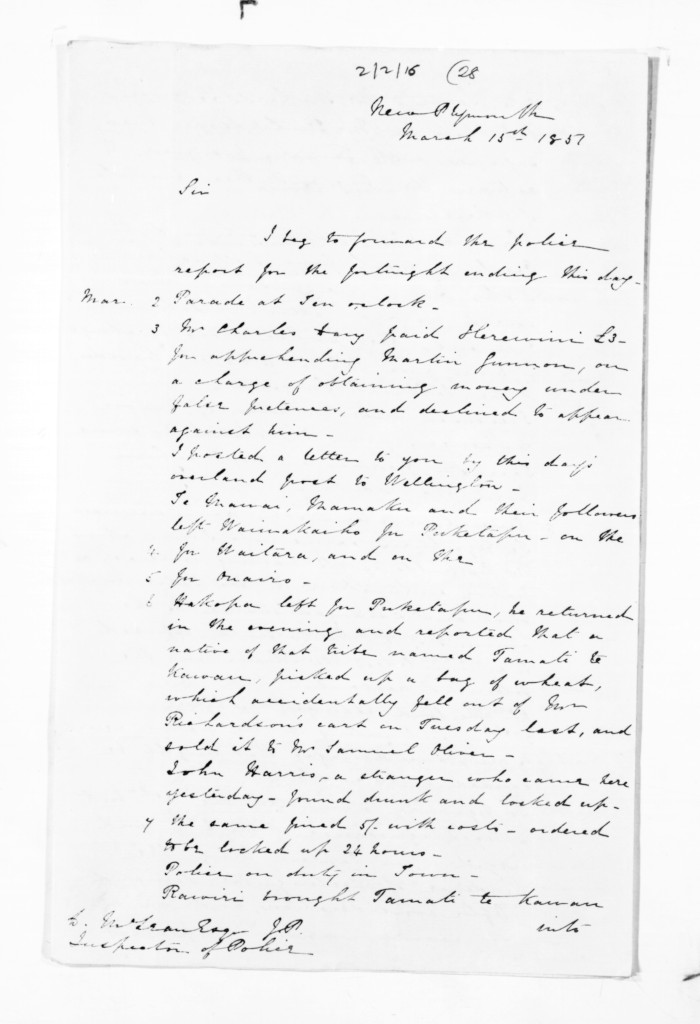 2/2/16 (28
New Plymouth
March 15th 1851
Sir
I beg to forward the police
report for the fortnight ending this day -
Mar. 2 Parade at Ten o'clock -
3 Mr Charles Davy paid Herewini £3 -
for apprehending Martin Gunnon, on
a charge of obtaining money under
false pretences, and declined to appear
against him -
I posted a letter to you by this day's
overland post to Wellington -
Te Mawai, Mamaku and their followers
left Waiwakaiho for Puketapu - on the
4 for Waitara, and on the
5 for Onairo -
6 Hakopa left for Puketapu, he returned
in the evening and reported that a
native of that tribe named Tamati te
Kawau, picked up a bag of wheat,
which accidentally fell out of Mr
Richardson's cart on Tuesday last, and
sold it to Mr Samuel Oliver -
John Harris, a stranger who came here
yesterday - found drunk and locked up -
7 the same fined 5/- with costs - ordered
to be locked up 24 hours -
Police on duty in Town -
Rawiri brought Tamati te Kawau
into
D. McLean Esqr J.P.
Inspector of Police